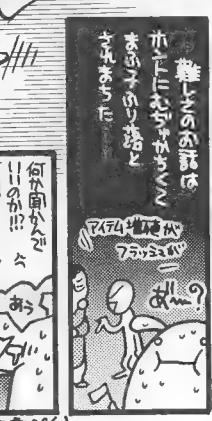 難しその お話は
ホントにむぢゅかちくて
まぶ子ふり落と
されまちた
アイテム増殖が
フラッシュが
あ〜?
何か聞かんで
いいのか!!?
あう